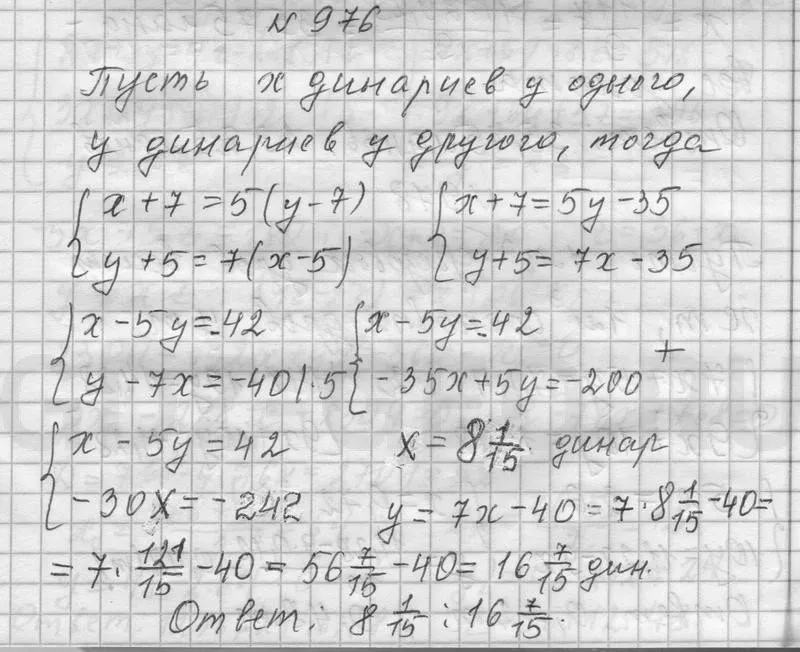 N 976
Пусть x динариев у одного,
y динариев у другого, тогда
{ x + 7 = 5(y - 7) { x + 7 = 5y - 35
{ y + 5 = 7(x - 5) { y + 5 = 7x - 35
{ x - 5y = -42 { x - 5y = -42
{ y - 7x = -40 | · 5 { -35x + 5y = -200 +
{ x - 5y = 42 x = 8 1/15 динар
{ -30x = -242 y = 7x - 40 = 7 · 8 1/15 - 40 =
= 7 · 121/15 - 40 = 56 7/15 - 40 = 16 7/15 дин.
Ответ: 8 1/15 ; 16 7/15.